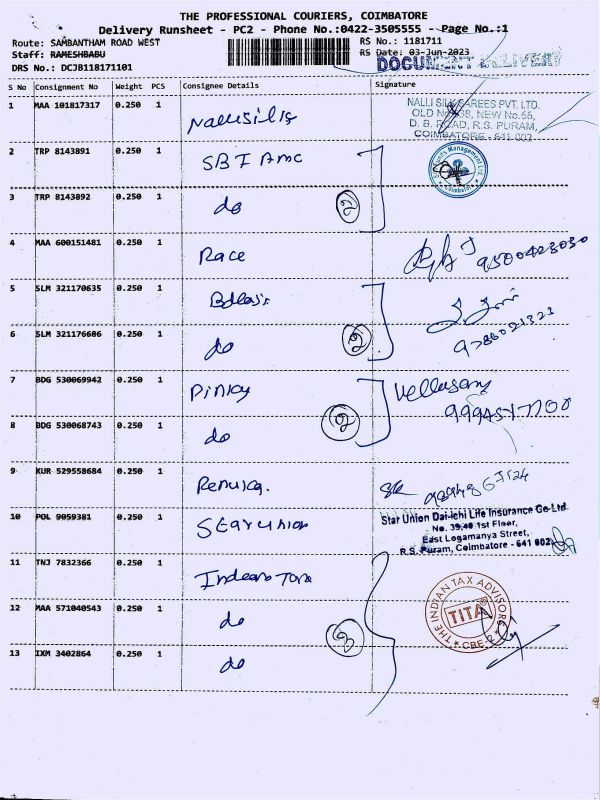 THE PROFESSIONAL COURIERS, COIMBATORE
Delivery Runsheet - PC2 - Phone No.:0422-3505555 - Page No.:1
Route: SAMBANTHAM ROAD WEST
RS No.: 1181711
Staff: RAMESHBABU
RS Date: 03-Jun-2023
DOCUMENT DELIVERY
DRS No.: DCJB118171101
S No Consignment No Weight PCS Consignee Details Signature
1 MAA 101817317 0.250 1 Nallisilks
NALLI SILK SAREES PVT. LTD.
OLD No.       NEW No.55,
D. B. ROAD, R.S. PURAM,
COIMBATORE - 641 002
2 TRP 8143891 0.250 1 SBI AMC
Funds Management Ltd.
Coimbatore
3 TRP 8143892 0.250 1 do 2
4 MAA 600151481 0.250 1 Race 9500423030
5 SLM 321170635 0.250 1
6 SLM 321176606 0.250 1 do 2
7 BDG 530069942 0.250 1 Pinkay
8 BDG 530068743 0.250 1 do 2
9 KUR 529558684 0.250 1 Renuka.
10 POL 9059381 0.250 1 Starunion
Star Union Dai-ichi Life Insurance Co Ltd
No. 39,40 1st Floor,
East Logamanya Street,
R.S. Puram, Coimbatore - 641 002
11 TNJ 7832366 0.250 1 Indean Tax
THE INDIAN TAX ADVISORS
TITA
CBE-2
12 MAA 571040543 0.250 1 do 3
13 IXM 3402864 0.250 1 do